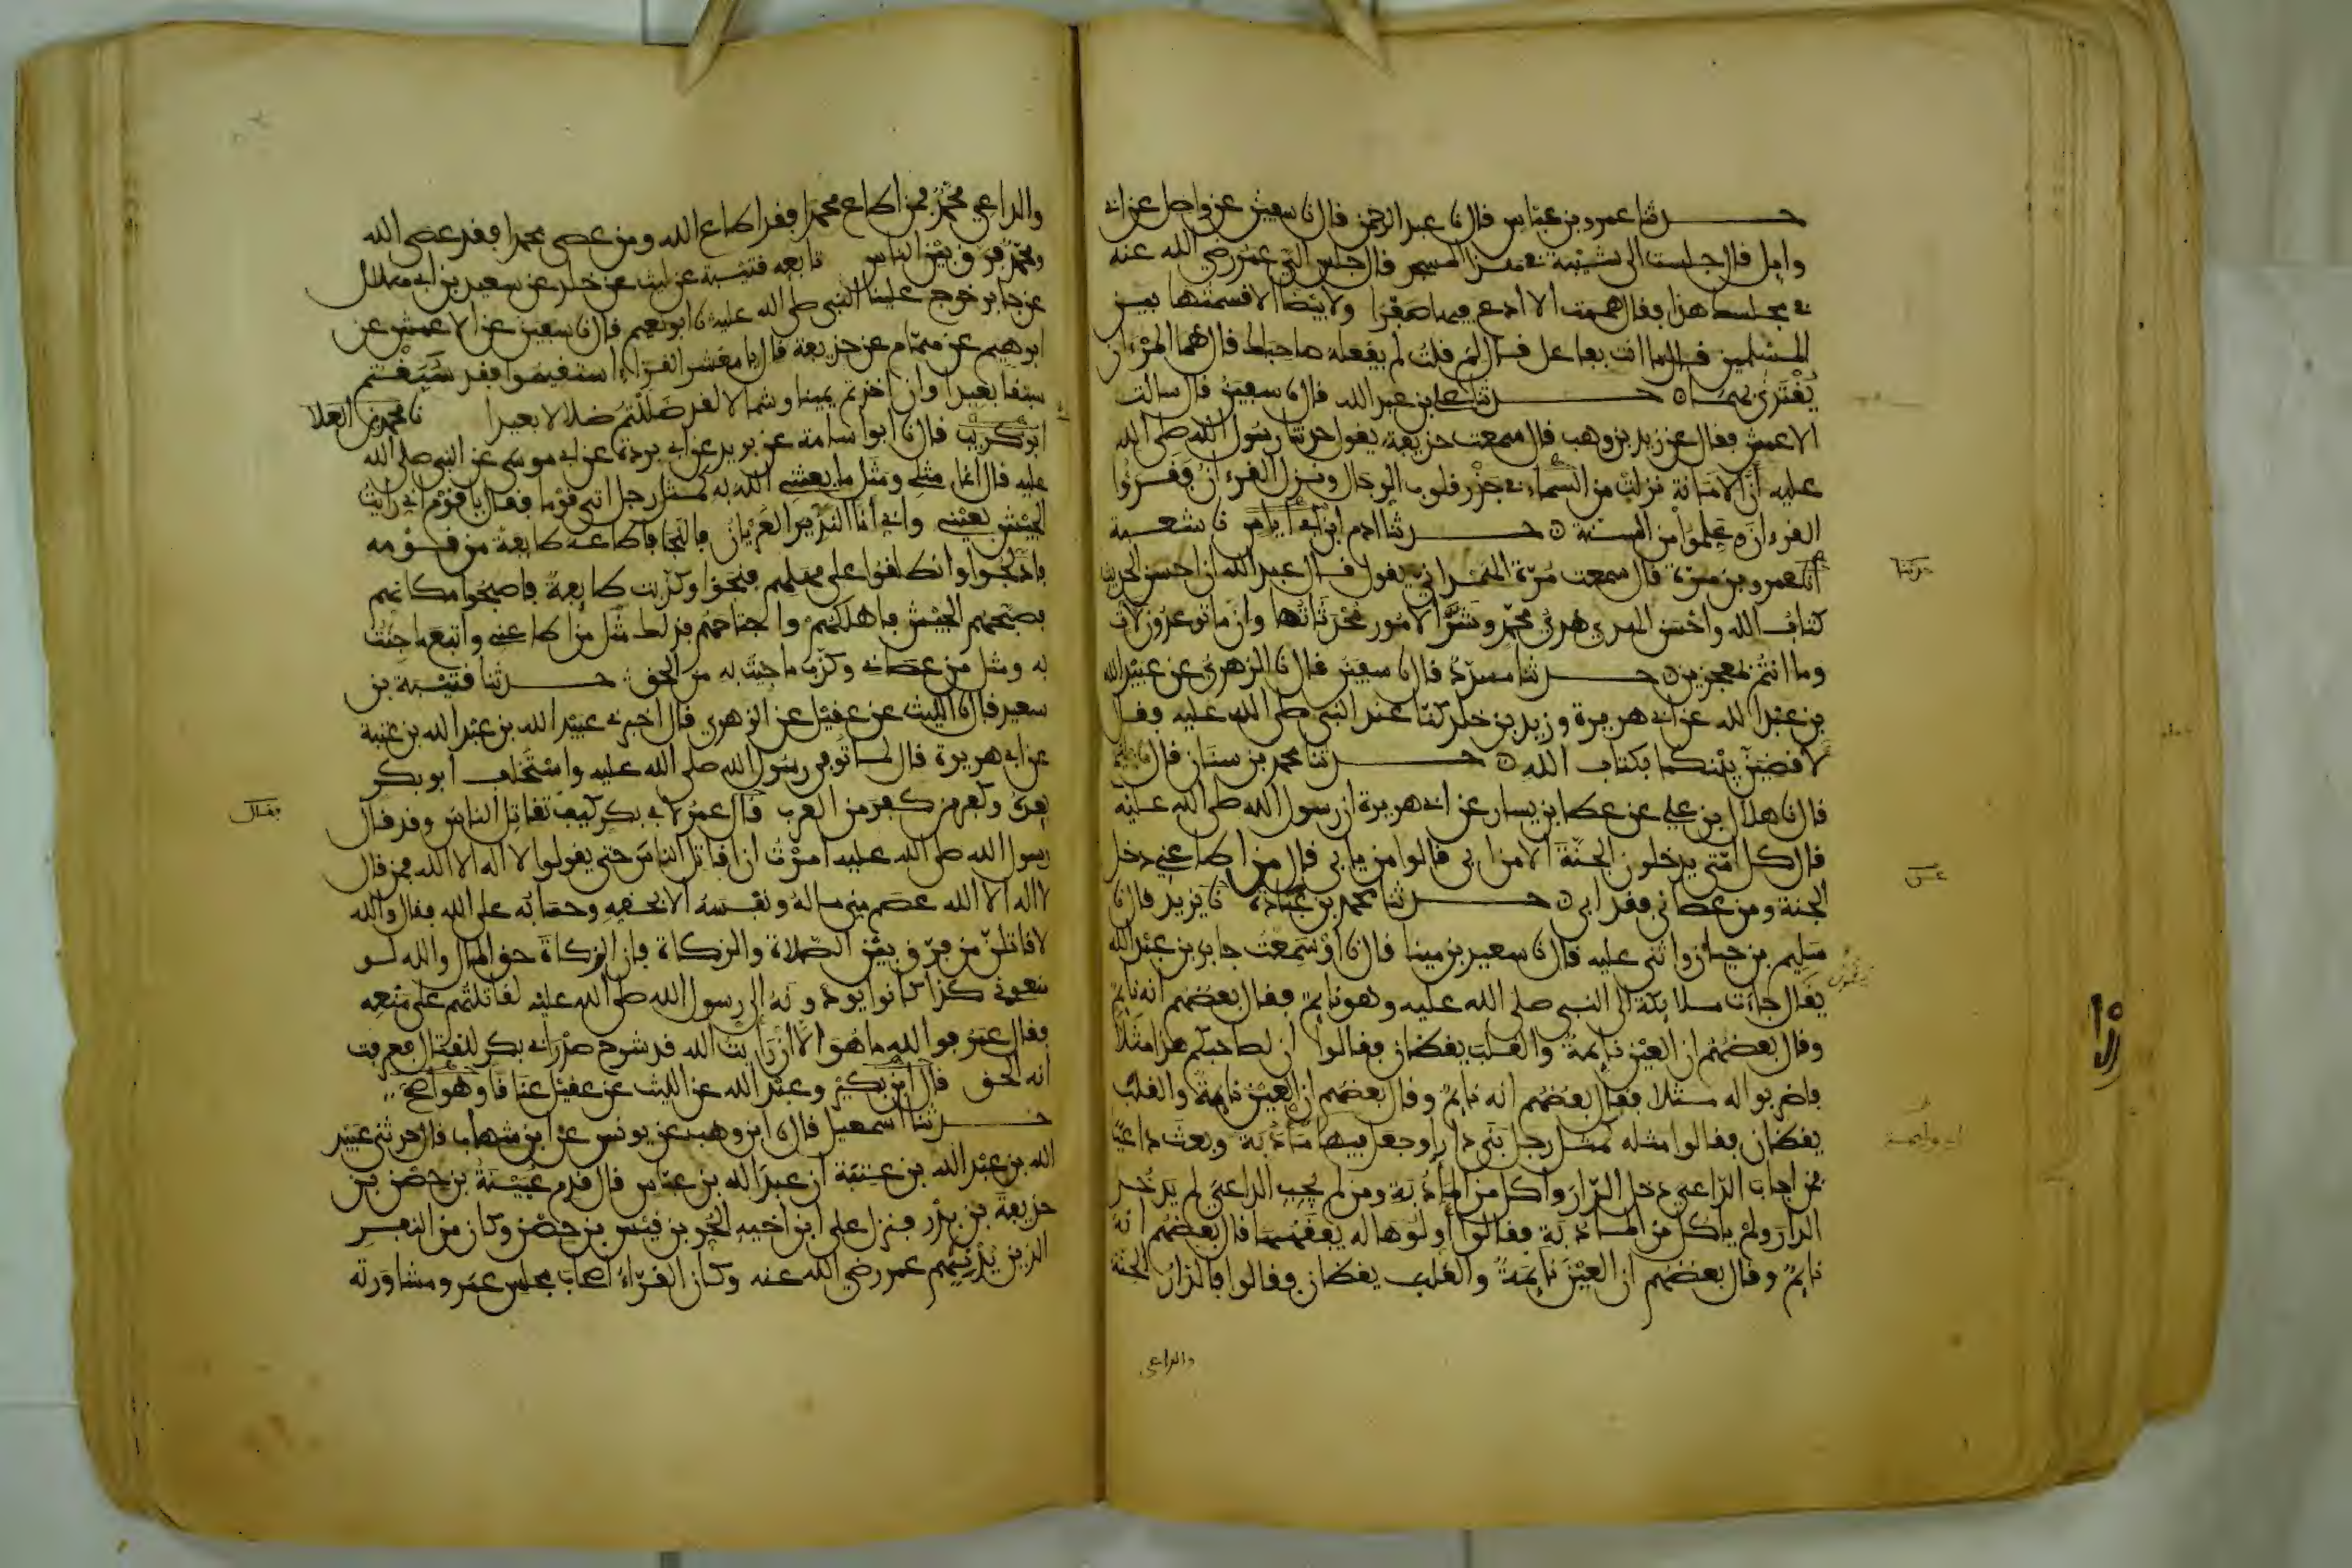 حدثنا عمرو بن عباس قال نا عبد الرحمن قال نا سفين عن واصل عن ابي
وايل قال جلست الى شيبة في هذا المسجد قال جلس الي عمر رضي الله عنه
في مجلسك هذا فقال هممت الا ادع فيها صفرا ولا بيضا الا قسمتها بين
المسلمين قال ما انت بفاعل قال لم قلت لم يفعله صاحباك قال هما المرءان
يقتدى بهما ۞ حدثنا علي بن عبد الله قال نا سفين قال سالت
الاعمش فقال عن زيد بن وهب قال سمعت حذيفة يقول حدثنا رسول الله صلى الله
عليه أن الامانة نزلت من السماء في جذر قلوب الرجال ونزل القرءان فقرءوا
القرءان وعلموا من السنة ۞ حدثنا ادم ابن ابي اياس نا شعبة
انا عمرو بن مرة قال سمعت مرة الهمداني يقول قال عبد الله ان احسن الحديث
كتاب الله وأحسن الهدي هدي محمد وشر الامور محدثاتها وان ما توعدون لات
وما انتم بمعجزين ۞ حدثنا مسدد قال نا سفين قال نا الزهري عن عبيد الله
بن عبد الله عن ابي هريرة وزيد بن خلد كنا عند النبي صلى الله عليه فقال
لاقضين بينكما بكتاب الله ۞ حدثنا محمد بن سنان قال نا فليح
قال نا هلال بن علي عن عطا بن يسار عن ابي هريرة ان رسول الله صلى الله عليه
قال كل امتي يدخلون الجنة الا من ابى قالوا من يابى قال من اطاعني دخل
الجنة ومن عصاني فقد ابى ۞ حدثنا محمد بن عبادة نا يزيد قال نا
سليم بن حيان واثنى عليه قال نا سعيد بن مينا قال نا او سمعت جابر بن عبد الله
يقال جاءت ملايكة الى النبي صلى الله عليه وهو نايم فقال بعضهم انه نايم
وقال بعضهم ان العين نايمة والقلب يقظان فقالوا ان لصاحبكم هذا مثلا
فاضربوا له مثلا فقال بعضهم انه نايم وقال بعضهم ان العين نايمة والقلب
يقظان فقالوا مثله كمثل رجل بنى دارا وجعل فيها مادبة وبعث داعيا
فمن اجاب الداعي دخل الدار واكل من المأدبة ومن لم يجب الداعي لم يدخل
الدار ولم ياكل من المادبة فقالوا أولوها له يفقهها قال بعضهم انه
نايم وقال بعضهم ان العين نايمة والقلب يقظان فقالوا فالدار الجنة
والداعي
حدثنا
عن
والداعي محمد فمن اطاع محمدا فقد اطاع الله ومن عصى محمدا فقد عصى الله
ومحمد فرق بين الناس تابعه قتيبة عن ليث عن خلد عن سعيد بن ابي هلال
عن جابر خرج علينا النبي صلى الله عليه نا ابو نعيم قال نا سفين عن الاعمش عن
ابرهيم عن همام عن حذيفة قال يا معشر القراء استقيموا فقد سبقتم
سبقا بعيدا وان اخذتم يمينا وشمالا لقد ضللتم ضلالا بعيدا نا محمد بن العلا
ابو كريب قال نا ابو اسامة عن بريد عن ابي بردة عن ابي موسى عن النبي صلى الله
عليه قال انما مثلي ومثل ما بعثني الله به كمثل رجل اتى قوما فقال يا قوم اني رايت
الجيش بعيني واني أنا النذير العريان فالنجا فاطاعه طايفة من قومه
فادلجوا وانطلقوا على مهلهم فنجوا وكذبت طايفة فاصبحوا مكانهم
فصبحهم الجيش فاهلكهم واجتاحهم فذلك مثل من اطاعني واتبع ما جئت
به ومثل من عصاني وكذب ما جيت به من الحق حدثنا قتيبة بن
سعيد قال نا الليث عن عقيل عن الزهري قال اخبرني عبيد الله بن عبد الله بن عتبة
عن ابي هريرة قال لما توفي رسول الله صلى الله عليه واستخلف ابو بكر
بعده وكفر من كفر من العرب قال عمر لابي بكر كيف تقاتل الناس وقد قال
رسول الله صلى الله عليه امرت ان اقاتل الناس حتى يقولوا لا اله الا الله فمن قال
لا اله الا الله عصم مني ماله ونفسه الا بحقه وحسابه على الله فقال والله
لاقاتلن من فرق بين الصلاة والزكاة فان الزكاة حق المال والله لو
منعوني كذا كانوا يودونه الى رسول الله صلى الله عليه لقاتلتهم على منعه
فقال عمر فوالله ما هو الا ان رايت الله قد شرح صدر ابي بكر للقتال فعرفت
انه الحق قال ابن بكير وعبد الله عن الليث عن عقيل عناقا وهو اصح
حدثنا اسمعيل قال نا ابن وهب عن يونس عن ابن شهاب قال حدثني عبيد
الله بن عبد الله بن عتبة ان عبد الله بن عباس قال قدم عيينة بن حصن بن
حذيفة بن بدر فنزل على ابن اخيه الحر بن قيس بن حصن وكان من النفر
الذين يدنيهم عمر رضي الله عنه وكان القراء اصحاب مجلس عمر ومشاورته
فقال